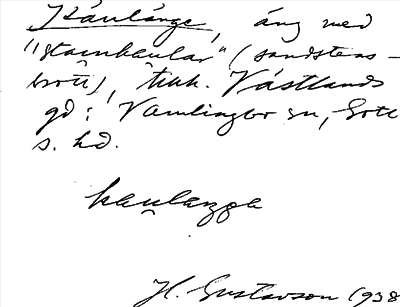 Kaulänge, äng med
"stainkaular" (sandstens-
brott), tillh. Västlands
gd i Vamlingbo sn, Gotl
s. hd.
kaulaŋga
H. Gustavson 1938